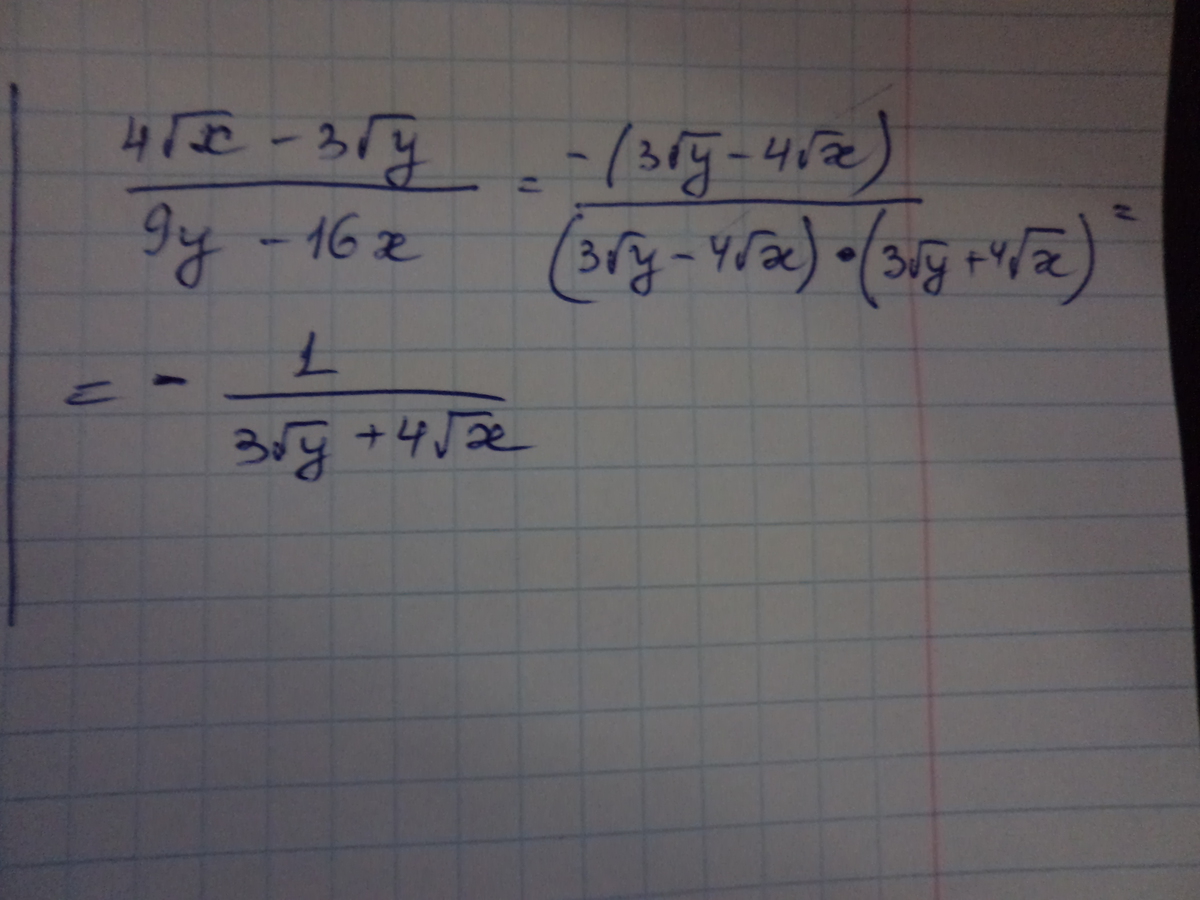 (4√x - 3√y)/(9y - 16x) = (-(3√y - 4√x))/((3√y - 4√x) • (3√y + 4√x)) =
= - 1/(3√y + 4√x)